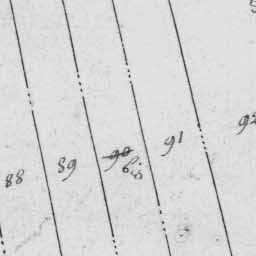 88
89
90
bis
91
92